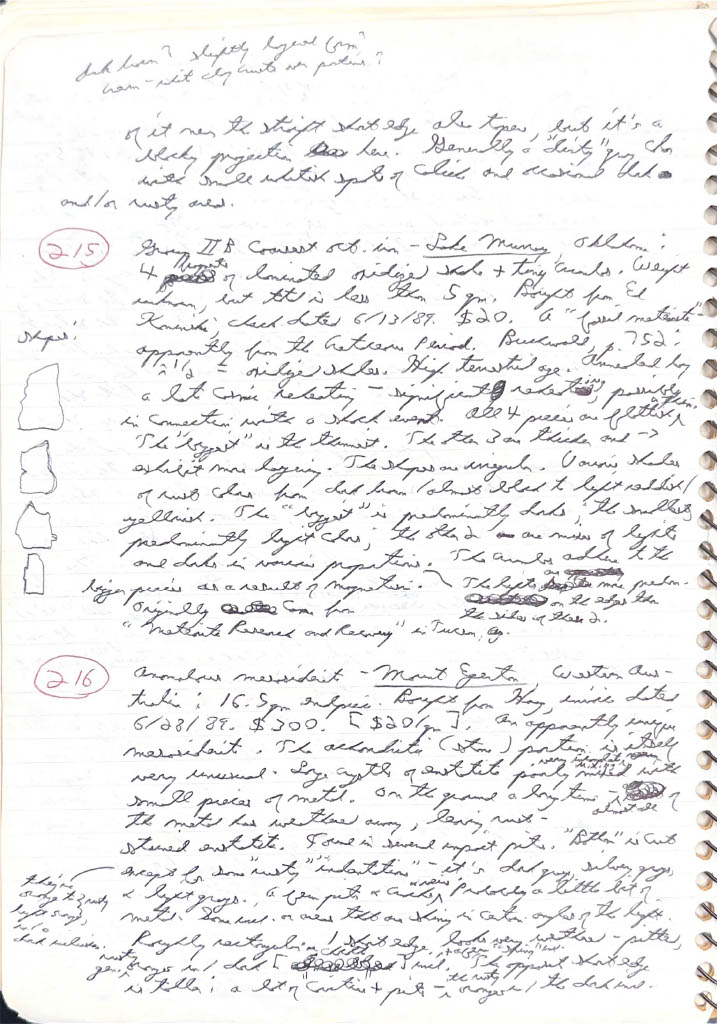 dark brown? slightly layered form?
warm-
of it near the straight short edge also tapers, but it's a
blocky projection here. Generally a "dirty" gray color
with small whitish spots of and occasional dark
and/or rusty areas.
215 Group IIB Coarsest oct. iron - Lake Murray, Oklahoma:
4 fragments of laminated oxidized shale + tiny crumbs. Weight
unknown, but total is less than 5 gm. Bought from Ed
check dated 6/13/89. $20. A "fossil meteorite" -
apparently from the Cretaceous Period. Buchwald, p. 752:
- oxidized shales. High terrestrial age. Annealed by
a lot cosmic reheating - significant reheating, possibly
in connection with a shock event. All 4 pieces are flattish,
The "biggest" is the thinnest. The other 3 are thicker and ->
Shapes:
exhibit more layering. The shapes are irregular. Various shades
of rust colors from dark brown/almost black to light reddish/
yellowish. The "biggest" is predominantly darks; the smallest is
predominantly light colors; the other 2 are mixes of lights
and darks in various proportions. The crumbs adhere to the
bigger pieces as a result of magnetism. The lights are more predom-
Originally came from on the edges than
"Meteorite Research and Recovery" in Tucson, Az. the sides of these 2.
216 Anomalous mesosiderite - Mount Egerton, Western Aus-
tralia: 16.5 gm endpiece. Bought from Haag, invoice dated
6/28/89. $300. [$20/gm]. An apparently unique
mesosiderite. The achondritic (stone) portion is itself
very unusual. Large crystals of enstatite poorly mixed with
small pieces of metal. On the ground a long time - almost all of
the metal has weathered away, leaving rust-
stained enstatite. Found in several impact pits. "Bottom" is cut
except for some "rusty" "indentations" - it's dark grays, silvery grays,
& light grays. A few pits & cracks. Probably a little bit of
metal. Some incl. or areas that are shiny in certain angles of the light.
they're
orangy to rusty
light
dark inclusions.
Roughly rectangular. 1 short edge looks very weathered - pitted,
rusty orange w/ dark incl. The opposite short edge
is taller; a lot of cavities + pits - orange w/ the dark incl.